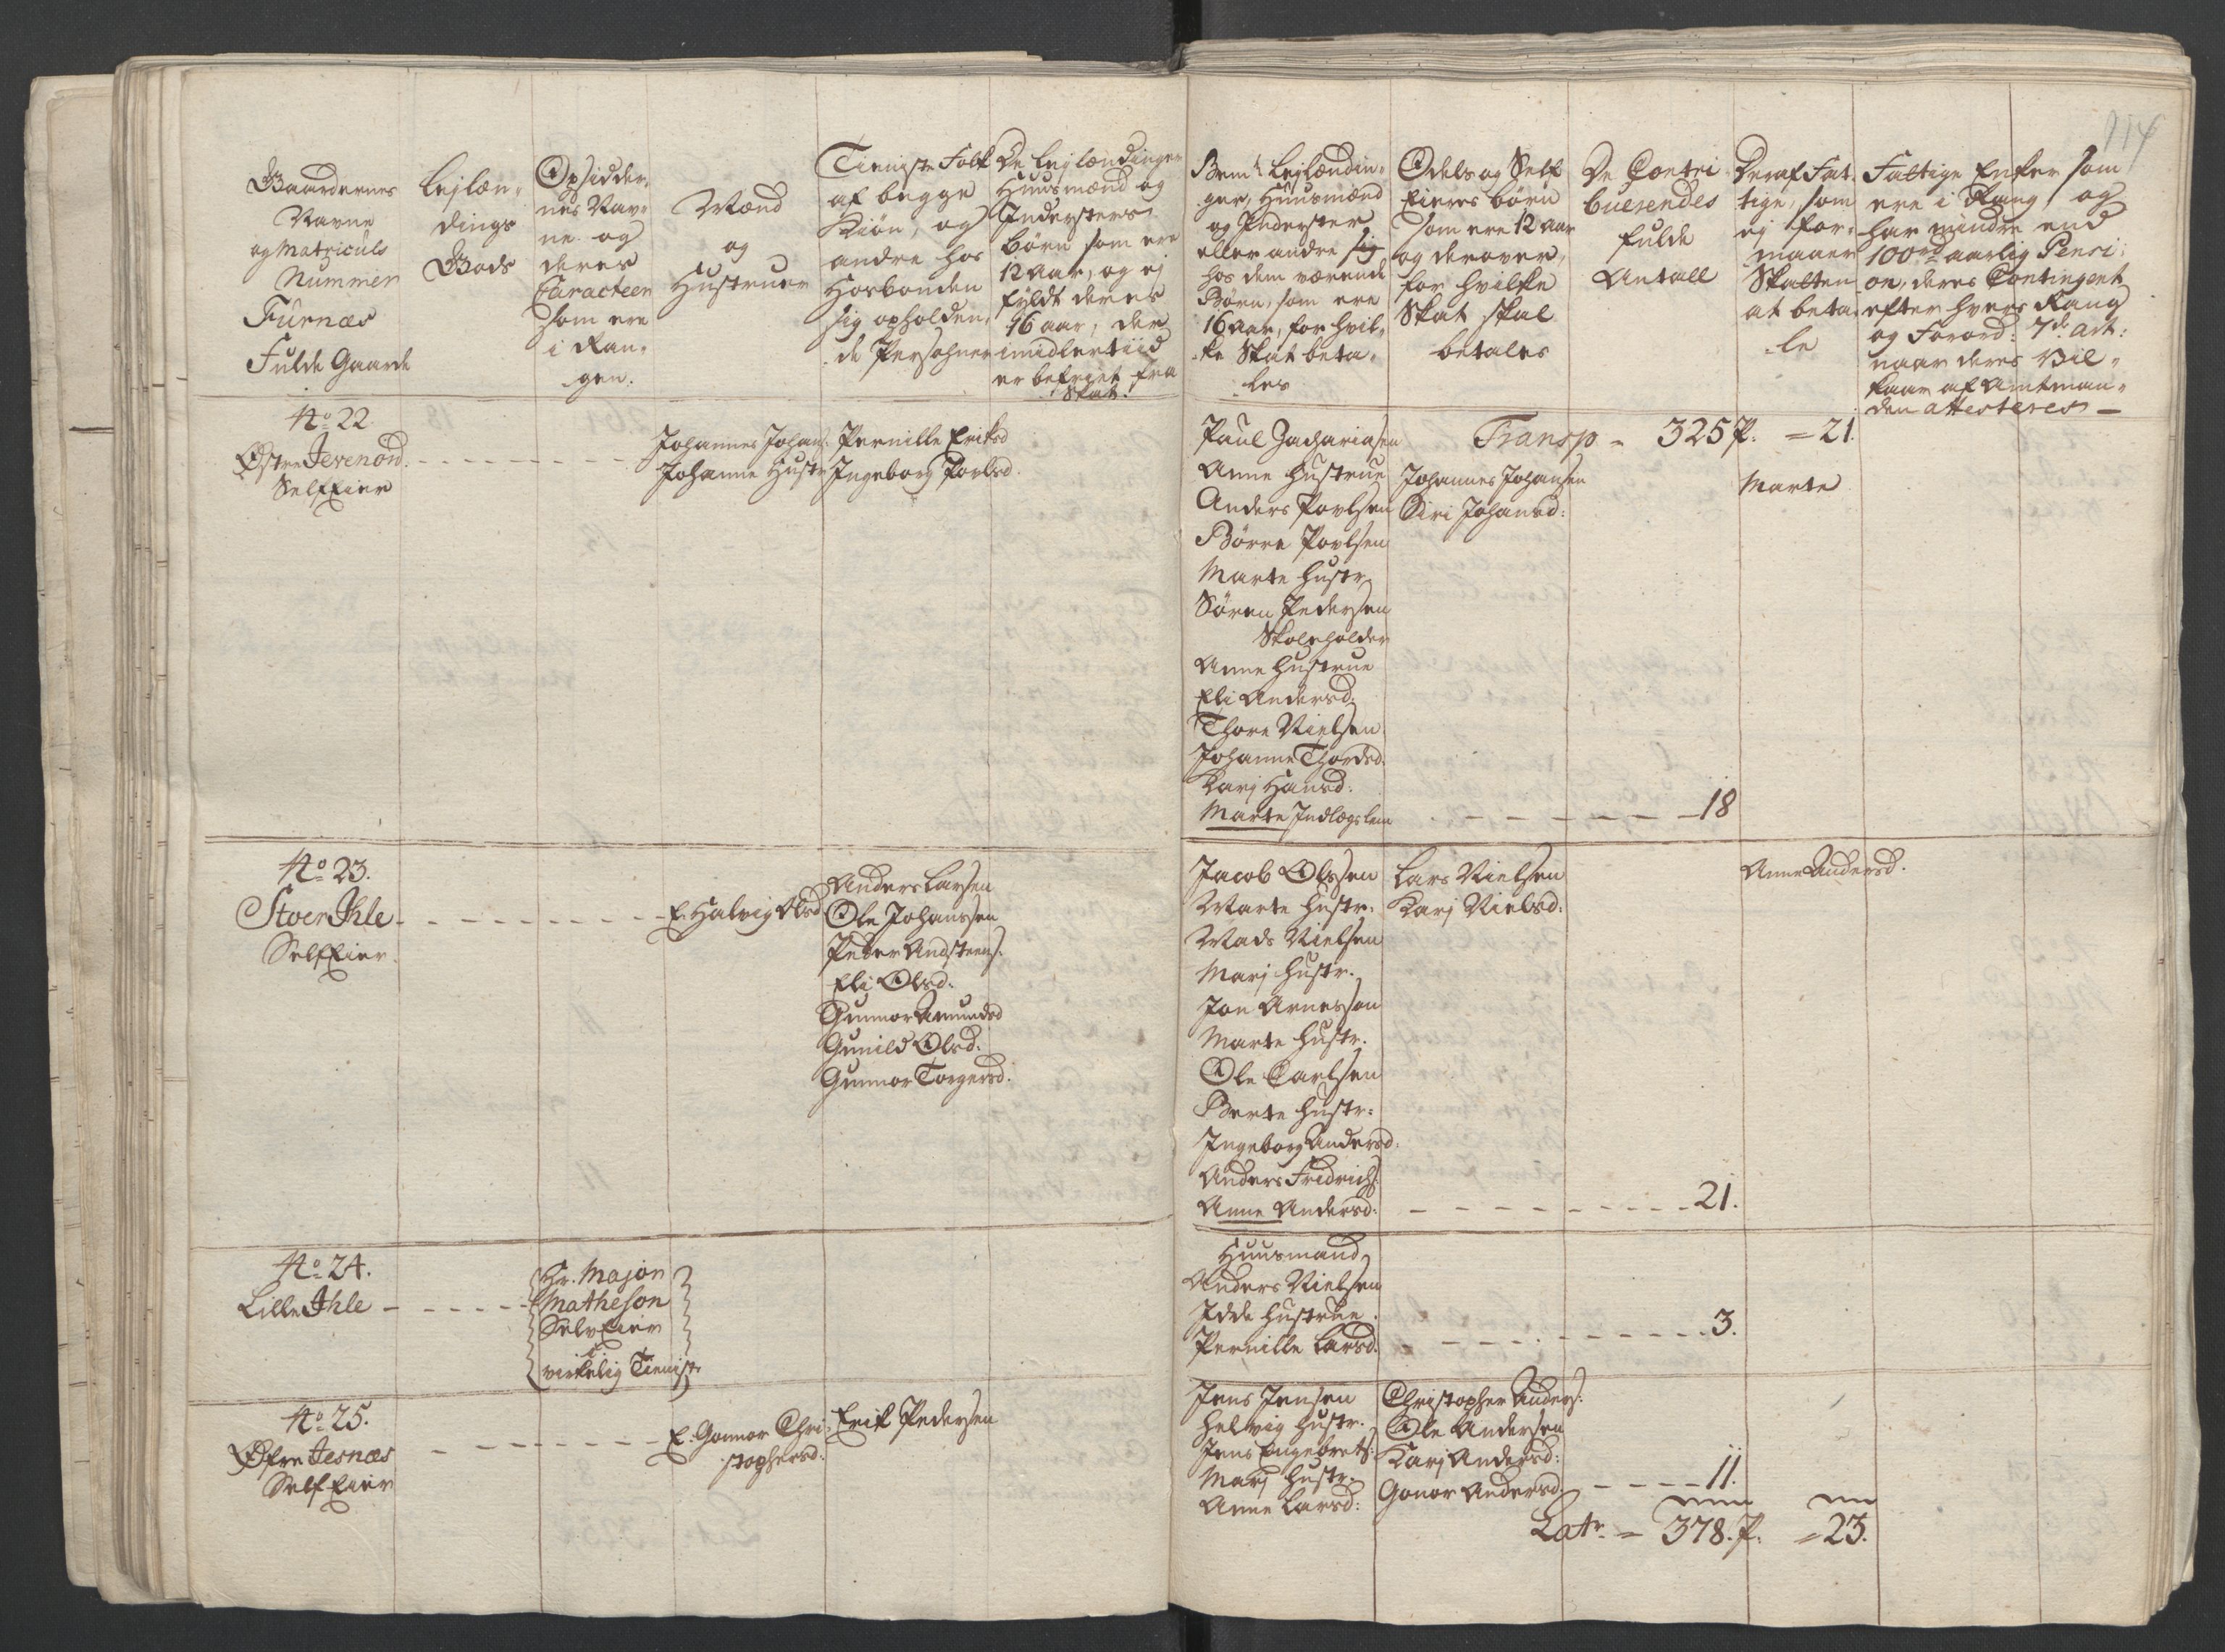 114
Gaardernes
Navne
og Matriculs
Nummer
Furnæs
Fulde Gaarde
Lejlæn-
dings
Gods
Opsidder-
nes Nav-
ne og
deres
Caracteer
som ere
i Ran-
gen.
Mænd
og
Hustruer
Tieniste Folk
af begge
Kiøn, og
andre hos
Hosbonden
sig opholden-
de Persohner
De Lejlændinger
Huusmænd og
Indersters
børn som ere
12 Aar, og ej
fyldt deres
16 aar, der
imidlertiid
er befriet fra
Skat.
Bem:te Lejlændin-
ger, Huusmænd
og Inderster
eller andre sig
hos dem værende
Børn, som ere
16 Aar, for hvil-
ke Skat beta-
les
Odels og Self
Eieres børn
som ere 12 aar
og derover,
for hvilke
Skat skal
betales
De Contri
buerendes
fulde
Antall
Deraf Fat-
tige, som
ej for-
maaer
Skatten
at beta-
le
Fattige Enker som
ere i Rang og
har mindre end
100 rd aarlig Pensi-
on, deres Contingent
efter hvers Rang
og Forord: 7de Art:
naar deres Vil-
kaar af Amtman-
den attesteres
No 22.
Østre Jevenord.
SelfEier
Johannes Johans:
Johanne Hustr
Pernille Eriksd
Ingeborg Povlsd.
Paul Zachariasen
Anne Hustrue
Anders Povlsen
Børre Povlsen
Marte Hustr
Søren Pedersen
Skoleholder
Anne Hustrue
Eli Andersd:
Thore Nielsen
Johanne Thordsd.
Karj Hansd:
Marte Indlægslem
Transp = 325 P. = 21.
Johannes Johansen
Siri Johansd:
Marte
18
No 23.
Stoer Ihle
SelfEier.
E. Halvig Olsd
Anders Larsen
Ole Johanssen
Peder Andsteens:
Eli Olsd:
Gunnor Amundsd
Gunild Olsd:
Gunnor Torgersd:
Jacob Olssen
Marte Hustr:
Mads Nielsen
Marj Hustr.
Jon Arnessen
Marte Hustr.
Ole Carlsen
Berte Hustr:
Ingeborg Andersd:
Anders Fridrichs:
Anne Andersd:
Lars Nielsen
Karj Nielsd:
21.
Anne Andersd.
No 24.
Lille Ihle
Hr. Major
Matheson
SelvEier
i
virkelig Tienist
Huusmand
Anders Nielsen
Idde Hustrue
Pernille Larsd:
3.
No 25.
Øfre Jesnæs
SelfEier
E. Gonnor Chri-
stophersd:
Erik Pedersen
Jens Jensen
Helvig Hustr.
Jens Engebrets:
Marj Hustr.
Anne Larsd:
Christopher Anders:
Ole Andersen
Karj Andersd:
Gonor Andersd.
11.
Latr = 378. P. = 23.